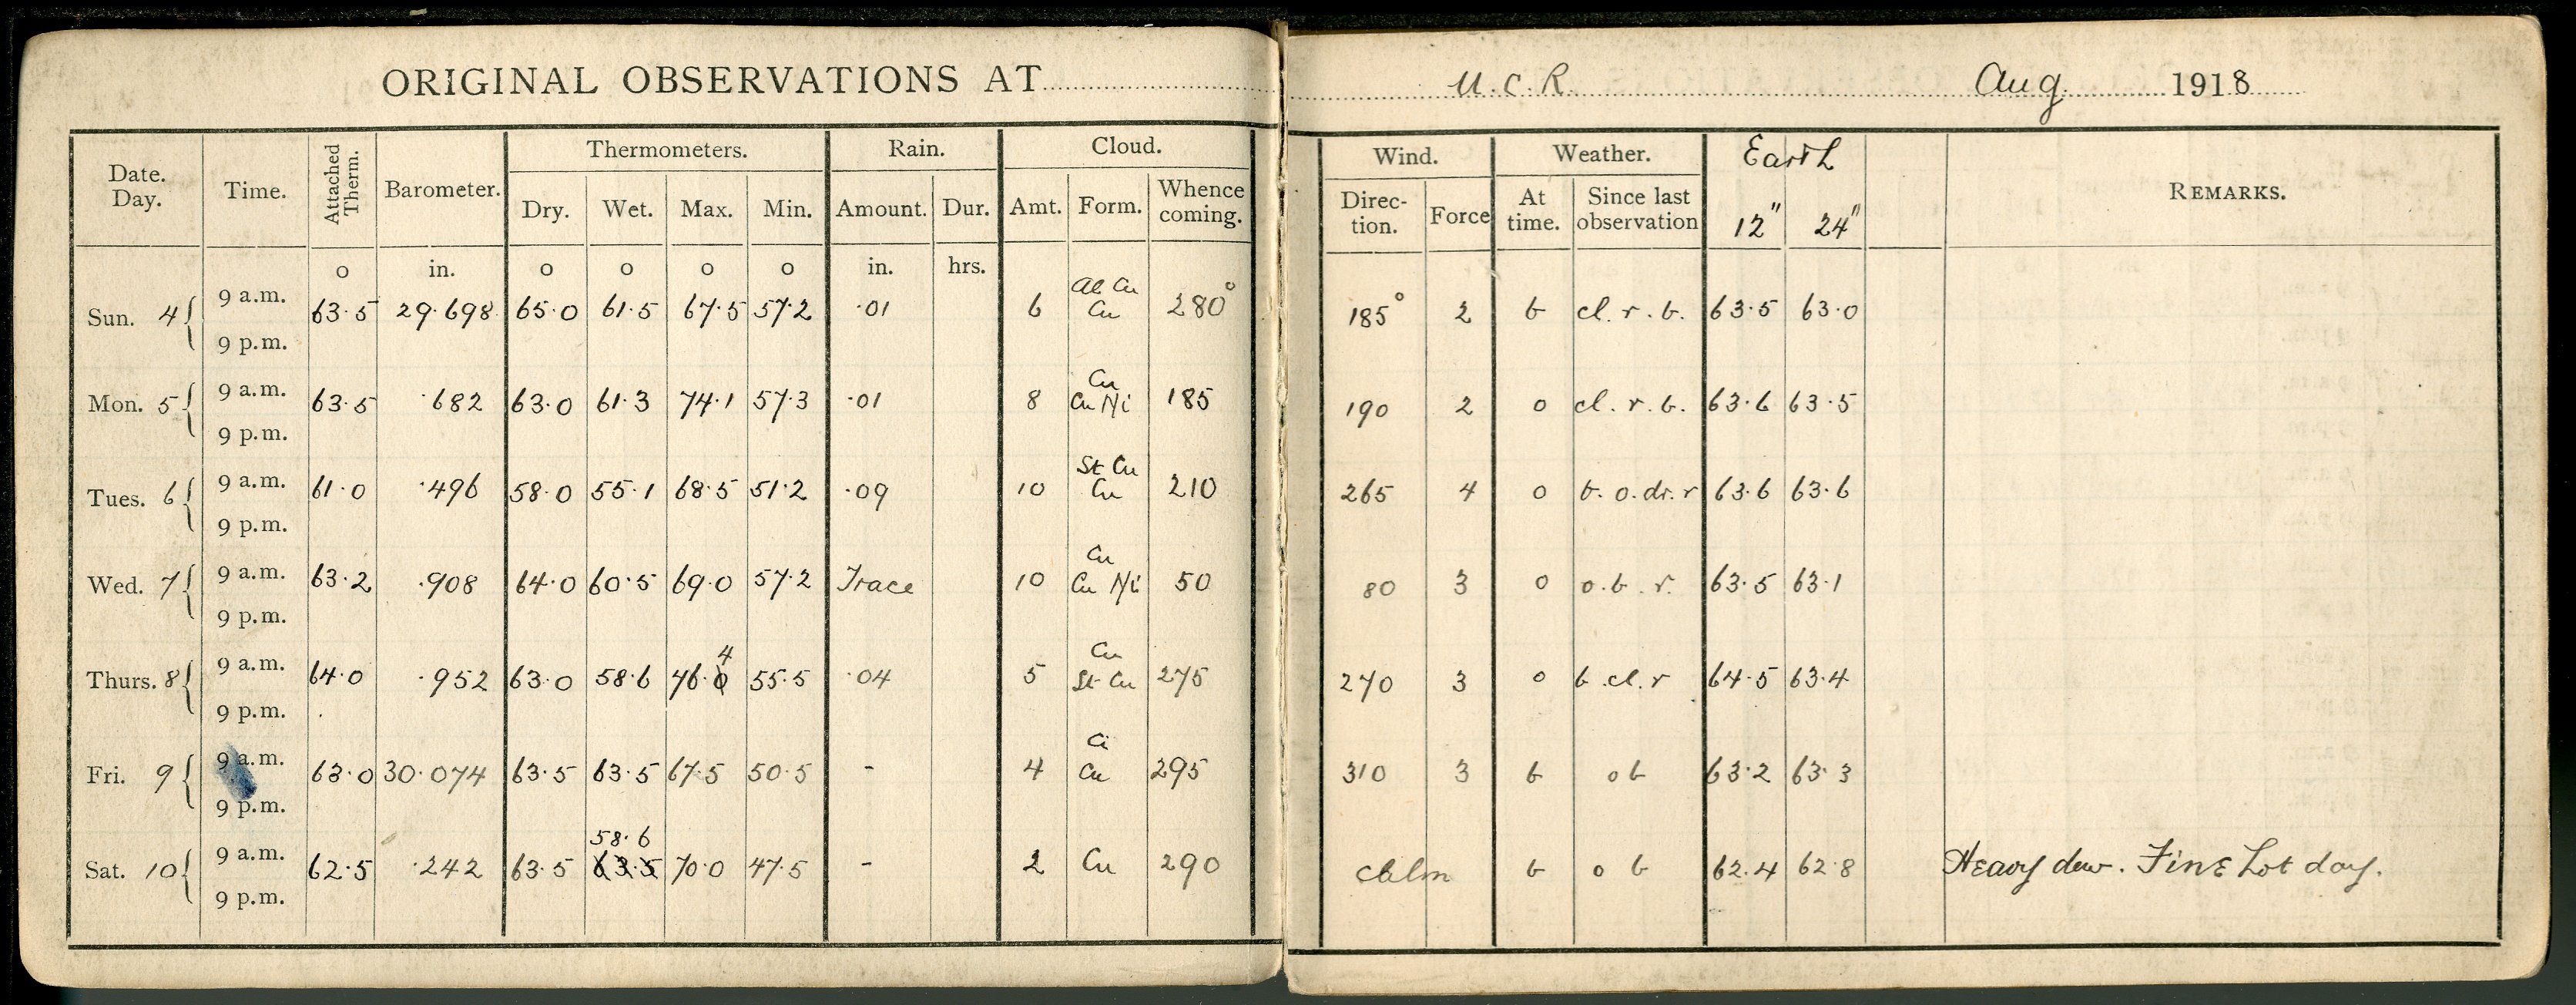 ORIGINAL OBSERVATIONS AT U.C.R. Aug. 1918
Date. Day. Time. Attached Therm. Barometer. Thermometers. Rain. Cloud. Wind. Weather. Earth REMARKS.
Dry. Wet. Max. Min. Amount. Dur. Amt. Form. Whence coming. Direc-tion. Force At time. Since last observation 12" 24"
o in. o o o o in. hrs.
Sun. 4 9 a.m. 63.5 29.698 65.0 61.5 67.5 57.2 .01 6 Al Cu Cu 280° 185° 2 b cl. r. b. 63.5 63.0
9 p.m.
Mon. 5 9 a.m. 63.5 .682 63.0 61.3 74.1 57.3 .01 8 Cu Cu Ni 185 190 2 o cl. r. b. 63.6 63.5
9 p.m.
Tues. 6 9 a.m. 61.0 .496 58.0 55.1 68.5 51.2 .09 10 St Cu Cu 210 265 4 o b. o. dr. r 63.6 63.6
9 p.m.
Wed. 7 9 a.m. 63.2 .908 64.0 60.5 69.0 57.2 Trace 10 Cu Cu Ni 50 80 3 o o. b. r. 63.5 63.1
9 p.m.
Thurs. 8 9 a.m. 64.0 .952 63.0 58.6 76.4 55.5 .04 5 Cu St Cu 275 270 3 o b. cl. r 64.5 63.4
9 p.m.
Fri. 9 9 a.m. 63.0 30.074 63.5 63.5 67.5 50.5 - 4 Ci Cu 295 310 3 b o b 63.2 63.3
9 p.m.
58.6
Sat. 10 9 a.m. 62.5 .242 63.5 63.5 70.0 47.5 - 2 Cu 290 calm b o b 62.4 62.8 Heavy dew. Fine hot day.
9 p.m.